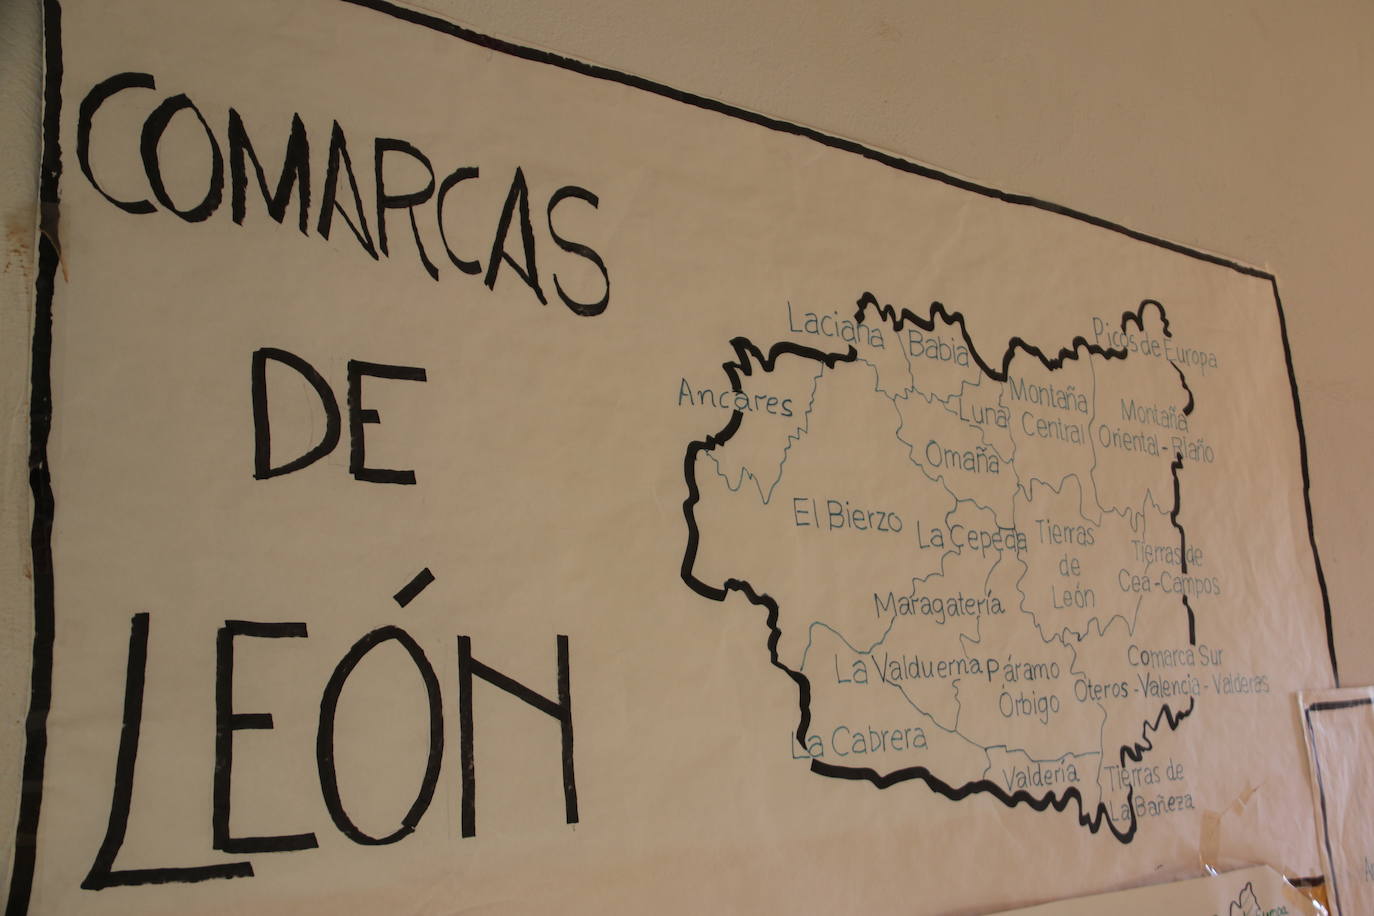 COMARCAS
DE
LEÓN
Laciana
Babia
Picos de Europa
Ancares
Luna
Montaña
Central
Montaña
Oriental-Riaño
Omaña
El Bierzo
La Cepeda
Tierras
de
León
Tierras de
Cea-Campos
Maragatería
La Valduerna
Páramo
Órbigo
Comarca Sur
Oteros-Valencia-Valderas
La Cabrera
Valdería
Tierras de
La Bañeza